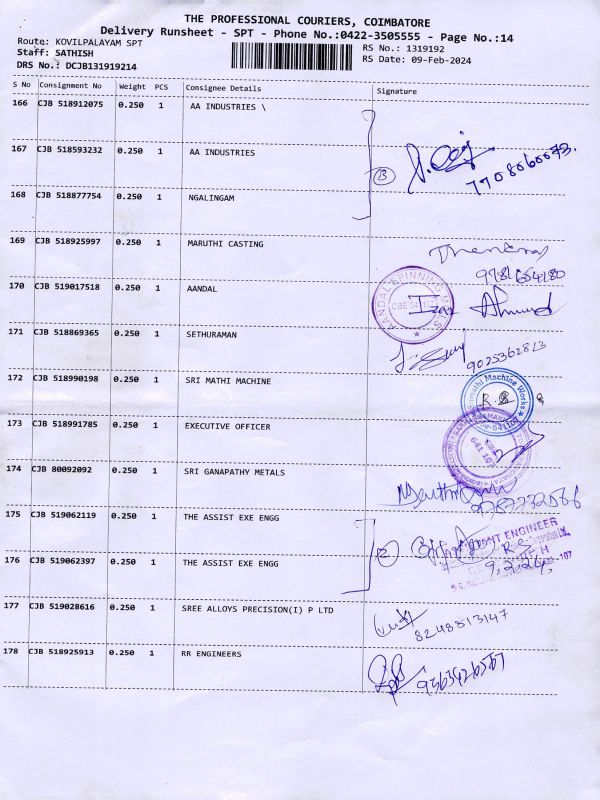 THE PROFESSIONAL COURIERS, COIMBATORE
Delivery Runsheet - SPT - Phone No.:0422-3505555 - Page No.:14
Route: KOVILPALAYAM SPT
RS No.: 1319192
Staff: SATHISH
RS Date: 09-Feb-2024
DRS No.: DCJB131919214
S No Consignment No Weight PCS Consignee Details Signature
166 CJB 518912075 0.250 1 AA INDUSTRIES \
167 CJB 518593232 0.250 1 AA INDUSTRIES
3 7708060073.
168 CJB 518877754 0.250 1 NGALINGAM
169 CJB 518925997 0.250 1 MARUTHI CASTING
9781654180
170 CJB 519017518 0.250 1 AANDAL
AANDAL SPINNING MILLS
171 CJB 518869365 0.250 1 SETHURAMAN
9025362813
172 CJB 518990198 0.250 1 SRI MATHI MACHINE
Srimathi Machine Works
173 CJB 518991785 0.250 1 EXECUTIVE OFFICER
641 107
174 CJB 80092092 0.250 1 SRI GANAPATHY METALS
175 CJB 519062119 0.250 1 THE ASSIST EXE ENGG
2 ENGINEER
176 CJB 519062397 0.250 1 THE ASSIST EXE ENGG
9.2.24
177 CJB 519028616 0.250 1 SREE ALLOYS PRECISION(I) P LTD
8248513147
178 CJB 518925913 0.250 1 RR ENGINEERS